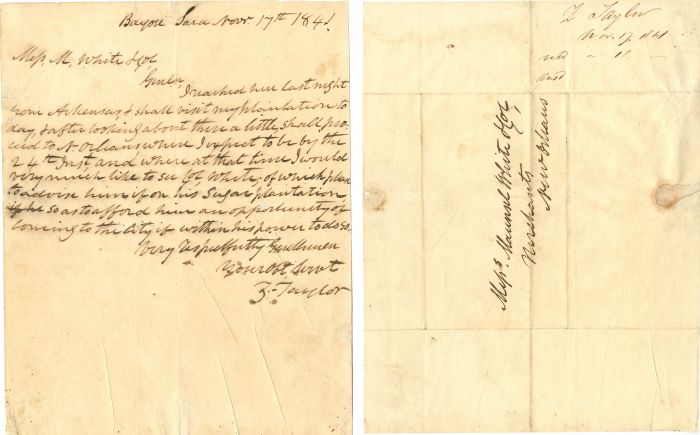 Bayou Sara Novr. 17th 1841
Messrs. M, White & Co,
Gentn,
I reached here last night
from Arkansas, & shall visit my plantation to
day, & after looking about there a little, shall pro,
ceed to N. Orleans where I expect to be by the
24th Inst and where at that time I would
very much like to see Col, White; of which please
to advise him if on his Sugar plantation
if he so as to afford him an opportunity of
coming to the City if within his power to do so.
Very respectfully Gentlemen
Your Obt, Servt
Z. Taylor
Z Taylor
Nov. 17, 1841
recd " 18. "
ansd
Messrs. Maunsel White & Co,
Merchants
New Orleans